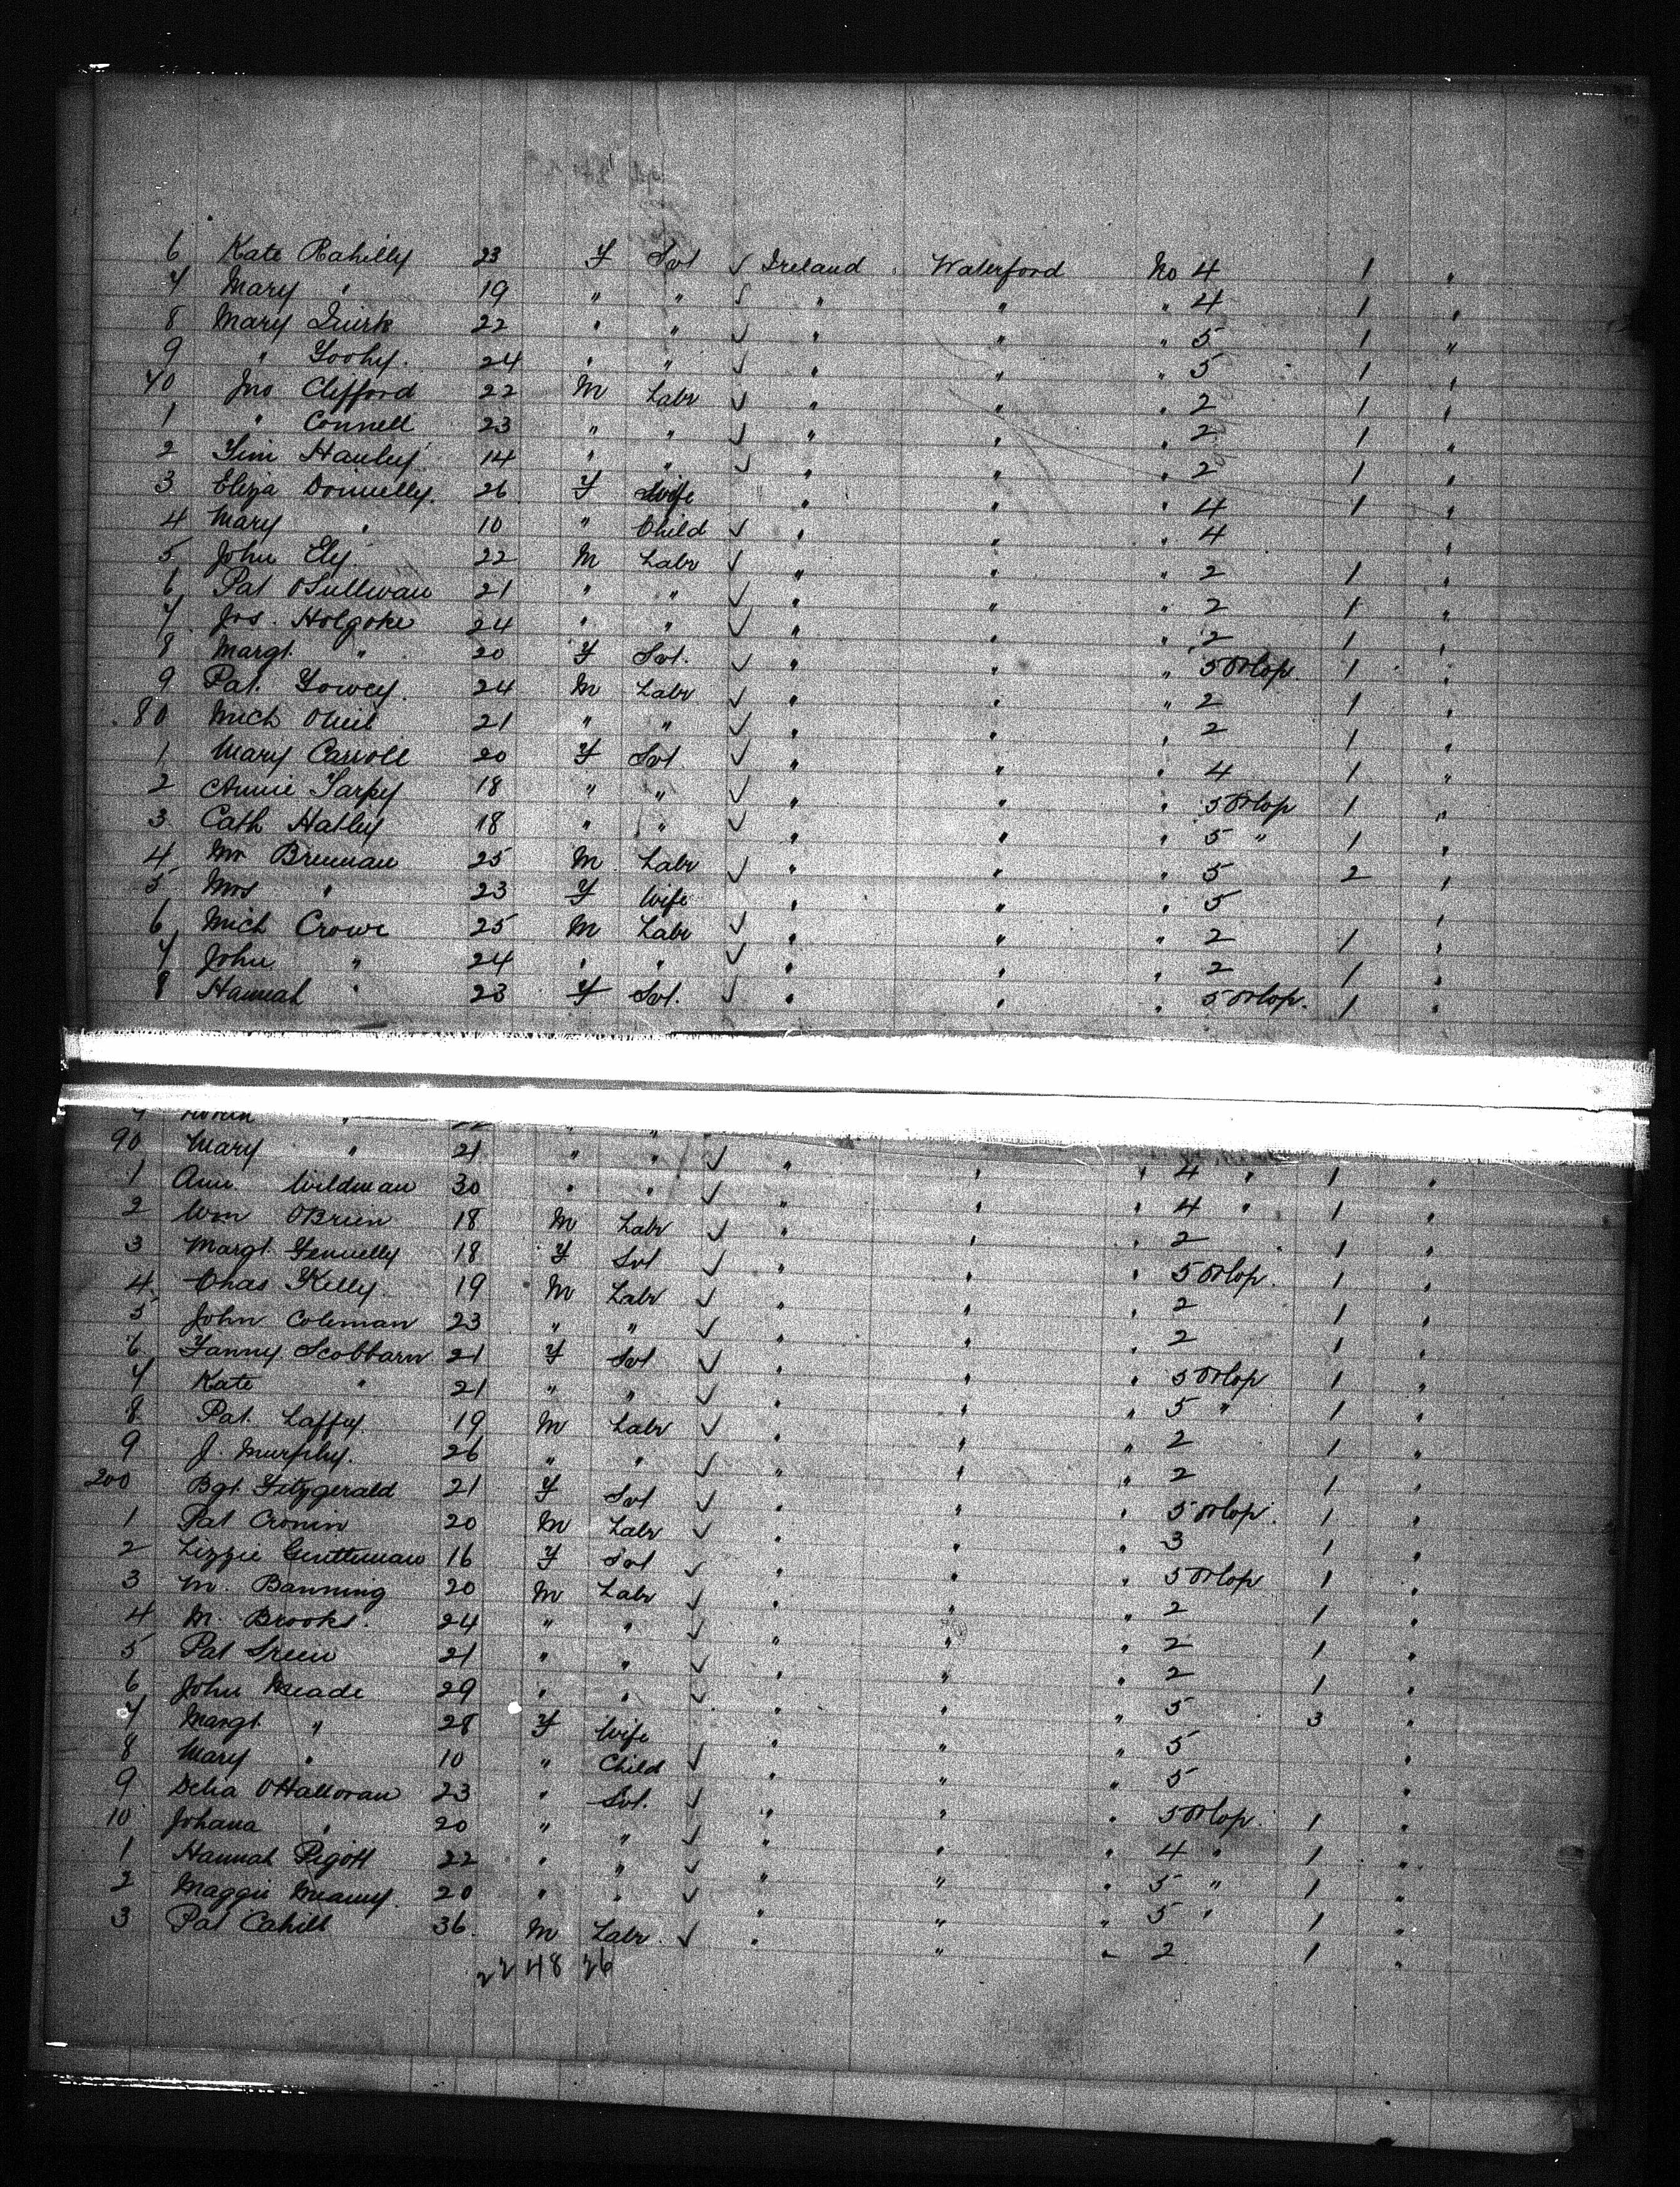 6 Kate Rahilly 23 F Svt ✓ Ireland Waterford No 4 1 "
7 Mary " 19 " " ✓ " " " 4 1 "
8 Mary Quirk 22 " " ✓ " " " 5 1 "
9 " Toohy. 24 " " ✓ " " " 5 1 "
70 Jno Clifford 22 M Labr ✓ " " " 2 1 "
1 " Connell 23 " " ✓ " " " 2 1 "
2 Tim Hanley 14 " " ✓ " " " 2 1 "
3 Eliza Donnelly. 26 F Wife " " " 4 1 "
4 Mary " 10 " Child ✓ " " " 4 "
5 John Ely 22 M Labr ✓ " " " 2 1 "
6 Pat OSullivan 21 " " ✓ " " " 2 1 "
7 Jos. Holgohe 24 " " ✓ " " " 2 1 "
8 Margt. " 20 F Svt. ✓ " " " 5 Orlop. 1 "
9 Pat. 24 M Labr ✓ " " " 2 1 "
80 Mich ONeil 21 " " ✓ " " " 2 1 "
1 Mary Carroll 20 F Svt ✓ " " " 4 1 "
2 Annie Tarpy 18 " " ✓ " " " 5 Orlop 1 "
3 Cath Hatley 18 " " ✓ " " " 5 " 1 "
4 Mr Brennan 25 M Labr ✓ " " " 5 2 "
5 Mrs " 23 F Wife " " " 5 "
6 Mich Crowe 25 M Labr ✓ " " " 2 1 "
7 John " 24 " " ✓ " " " 2 1 "
8 Hannah " 23 F Svt. ✓ " " " 5 Orlop. 1 "
90 Mary " 21 " " ✓ " " " 4 " 1 "
1 Ann Wildman 30 " " ✓ " " " 4 " 1 "
2 Wm OBrien 18 M Labr ✓ " " " 2 1 "
3 Margt. Fennelly 18 F Svt ✓ " " " 5 Orlop. 1 "
4 Chas Kelly 19 M Labr ✓ " " " 2 1 "
5 John Coleman 23 " " ✓ " " " 2 1 "
6 Fanny Scobbarn 21 F Svt ✓ " " " 5 Orlop 1 "
7 Kate " 21 " " ✓ " " " 5 " 1 "
8 Pat. Laffey. 19 M Labr ✓ " " " 2 1 "
9 J. Murphy. 26 " " ✓ " " " 2 1 "
200 Bgt. Fitzgerald 21 F Svt ✓ " " " 5 Orlop. 1 "
1 Pat Cronin 20 M Labr ✓ " " " 3 1 "
2 Lizzie Gentleman 16 F Svt ✓ " " " 5 Orlop 1 "
3 M. Banning 20 M Labr ✓ " " " 2 1 "
4 M. Brooks. 24 " " ✓ " " " 2 1 "
5 Pat 21 " " ✓ " " " 2 1 "
6 John Meade 29 " " ✓ " " " 5 3 "
7 Margt. " 28 F Wife " " " 5 "
8 Mary " 10 " Child ✓ " " " 5 "
9 Delia OHalloran 23 " Svt. ✓ " " " 5 Orlop. 1 "
10 Johana " 20 " " ✓ " " " 4 " 1 "
1 Hannah Pigott 22 " " ✓ " " " 5 " 1 "
2 Maggie 20 " " ✓ " " " 5 " 1 "
3 Pat Cahill 36. M Labr. ✓ " " " 2 1 "
22 48 26